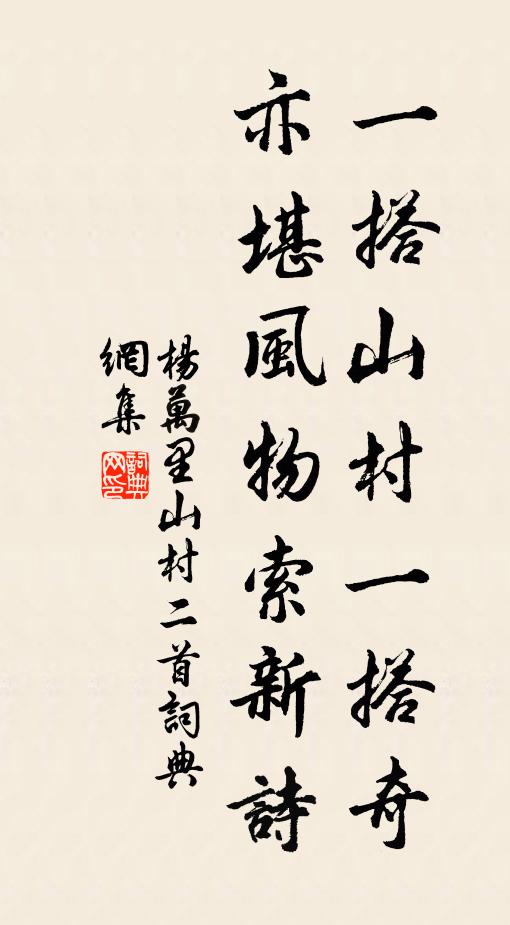 一搭山村一搭奇
亦堪風物索新詩
楊萬里山村二首詞典
網集
詞典
网印